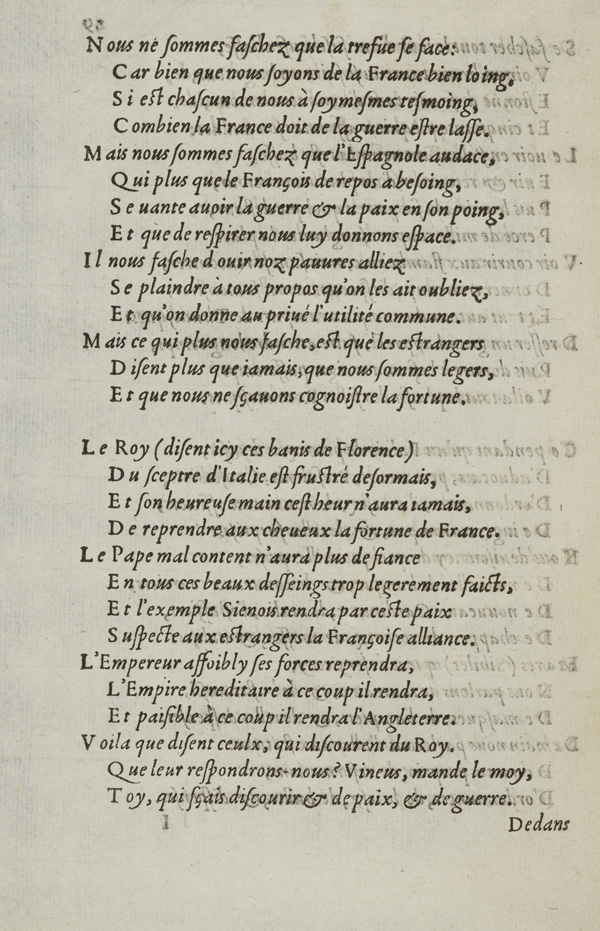 Nous ne ſommes faſchez que la trefue ſe face:
Car bien que nous ſoyons de la France bien loing,
Si eſt chaſcun de nous à ſoymeſmes teſmoing,
Combien la France doit de la guerre eſtre laſſe.
Mais nous ſommes faſchez que l'Eſpagnole audace,
Qui plus que le François de repos a beſoing,
Se uante auoir la guerre & la paix en ſon poing,
Et que de reſpirer nous luy donnons eſpace.
Il nous faſche d ouir noz pauures alliez
Se plaindre à tous propos qu'on les ait oubliez,
Et qu'on donne au priué l'utilité commune.
Mais ce qui plus nous faſche, eſt que les eſtrangers
Diſent plus que iamais, que nous ſommes legers,
Et que nous ne ſçauons cognoiſtre la fortune.

Le Roy (diſent icy ces banis de Florence)
Du ſceptre d'Italie eſt fruſtré deſormais,
Et ſon heureuſe main ceſt heur n'aura iamais,
De reprendre aux cheueux la fortune de France.
Le Pape mal content n'aura plus de fiance
En tous ces beaux deſſeings trop legerement faicts,
Et l'exemple Sienois rendra par ceſte paix
Suſpecte aux eſtrangers la Françoiſe alliance.
L'Empereur affoibly ſes forces reprendra,
L'Empire hereditaire à ce coup il rendra,
Et paiſible à ce coup il rendra l'Angleterre.
Voila que diſent ceulx, qui diſcourent du Roy.
Que leur reſpondrons-nous? Vineus, mande le moy,
Toy, qui ſçais diſcourir & de paix, & de guerre.
Dedans